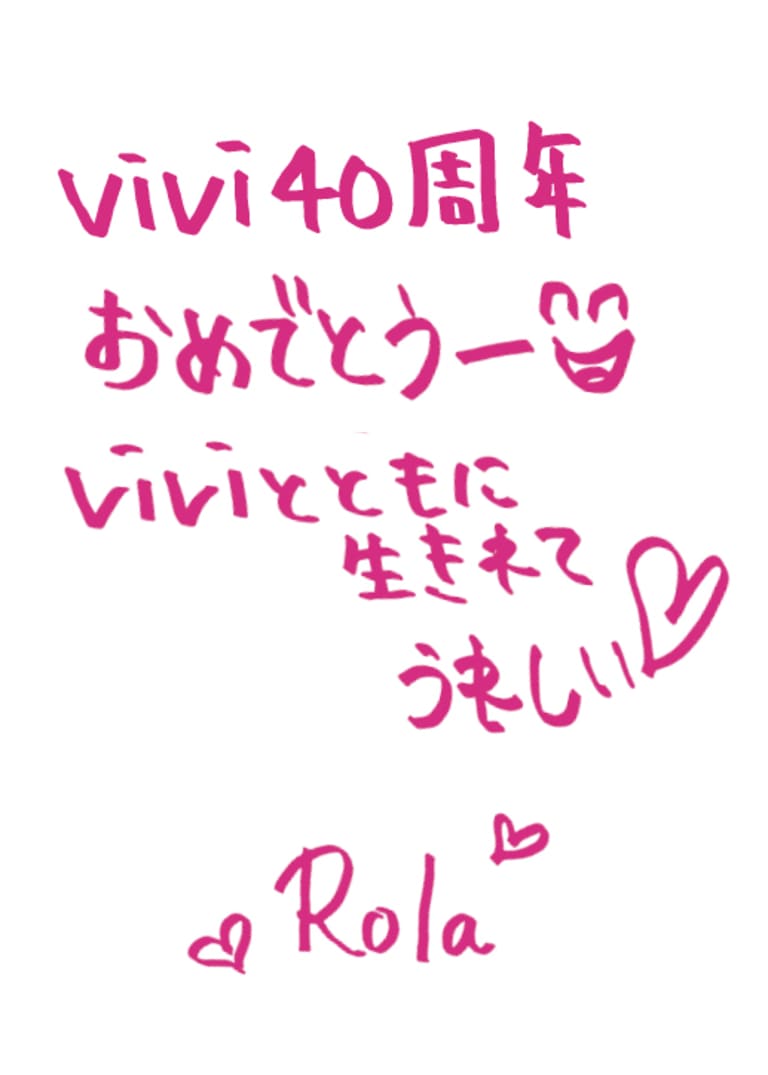 ViVi 40周年
おめでとうー
ViViとともに
生きれて
うれしい
Rola